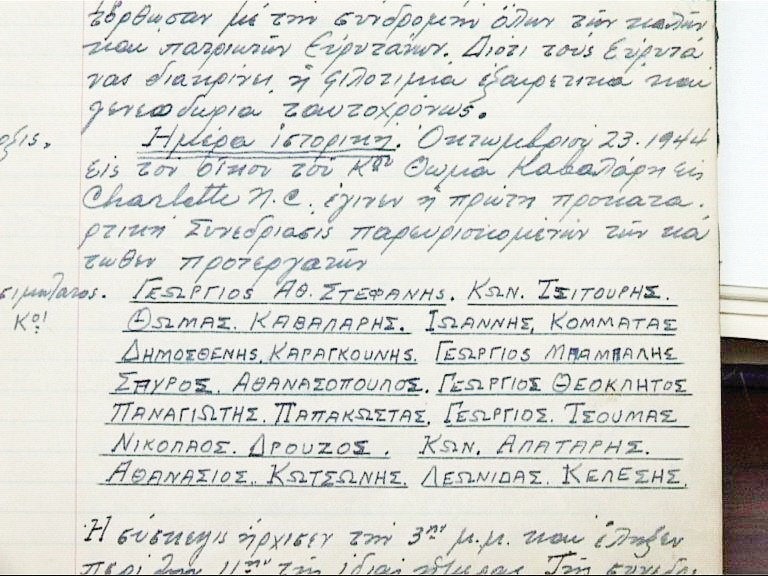 τόρθωσαν με την συνδρομήν όλων των καλών
και πατριωτών Ευρυτάνων. Διότι τους Ευρυτά
νας διακρίνει, η φιλοτιμία εξαιρετικά και
γενεοδωρια ταυτοχρόνως.
Ημέρα ιστορική. Οκτωμβρίου 23.1944
εις τον οίκον του Κου Θωμά Καβαλάρη εις
Charlotte N.C. έγινεν η πρώτη προκατα.
ρτική Συνεδρίασις παρευρισκομένων των κά
τωθεν προτεργατών
Κοι
ΓΕΩΡΓΙΟΣ ΑΘ. ΣΤΕΦΑΝΗΣ. ΚΩΝ. ΤΣΙΤΟΥΡΗΣ.
ΘΩΜΑΣ. ΚΑΒΑΛΑΡΗΣ. ΙΩΑΝΝΗΣ. ΚΟΜΜΑΤΑΣ
ΔΗΜΟΣΘΕΝΗΣ. ΚΑΡΑΓΚΟΥΝΗΣ. ΓΕΩΡΓΙΟΣ ΜΠΑΜΠΑΛΗΣ
ΣΠΥΡΟΣ. ΑΘΑΝΑΣΟΠΟΥΛΟΣ. ΓΕΩΡΓΙΟΣ ΘΕΟΚΛΗΤΟΣ
ΠΑΝΑΓΙΩΤΗΣ. ΠΑΠΑΚΩΣΤΑΣ. ΓΕΩΡΓΙΟΣ. ΤΣΟΥΜΑΣ
ΝΙΚΟΛΑΟΣ. ΔΡΟΥΖΟΣ. ΚΩΝ. ΑΠΑΤΑΡΗΣ.
ΑΘΑΝΑΣΙΟΣ. ΚΩΤΣΩΝΗΣ. ΛΕΩΝΙΔΑΣ. ΚΕΛΕΣΗΣ.
Η σύσκεψις ήρχισεν την 3ην μ.μ. και έληξεν
περί την 11ην της ιδίας ημέρας. Της συνεδρ